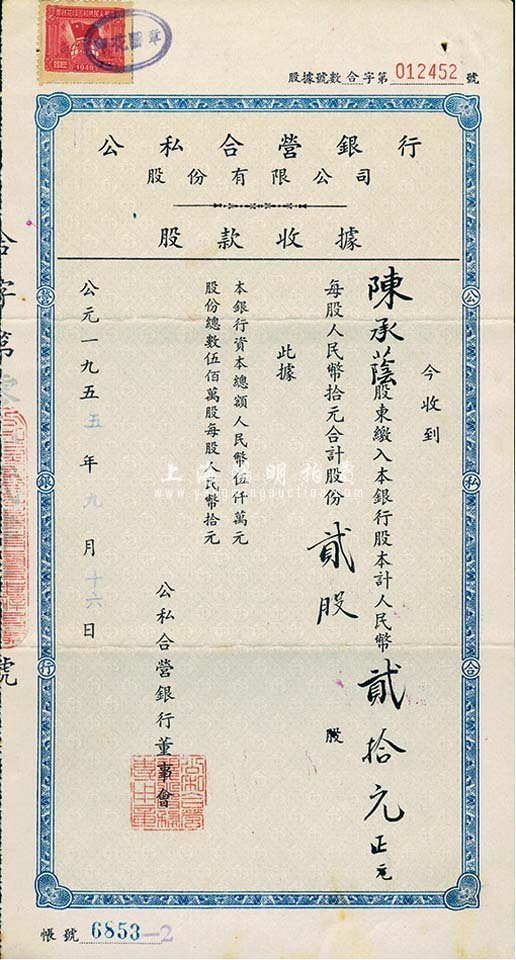 股據號數合字第012452號
公私合營銀行
股份有限公司
股款收據
今收到
陳承蔭股東繳入本銀行股本計人民幣貳拾元正元
每股人民幣拾元合計股份貳股股
此據
本銀行資本總額人民幣伍仟萬元
股份總數伍佰萬股每股人民幣拾元
公私合營銀行董事會
公元一九五五年九月十六日
帳號6853-2
公私合營銀行
合字第
號
1949